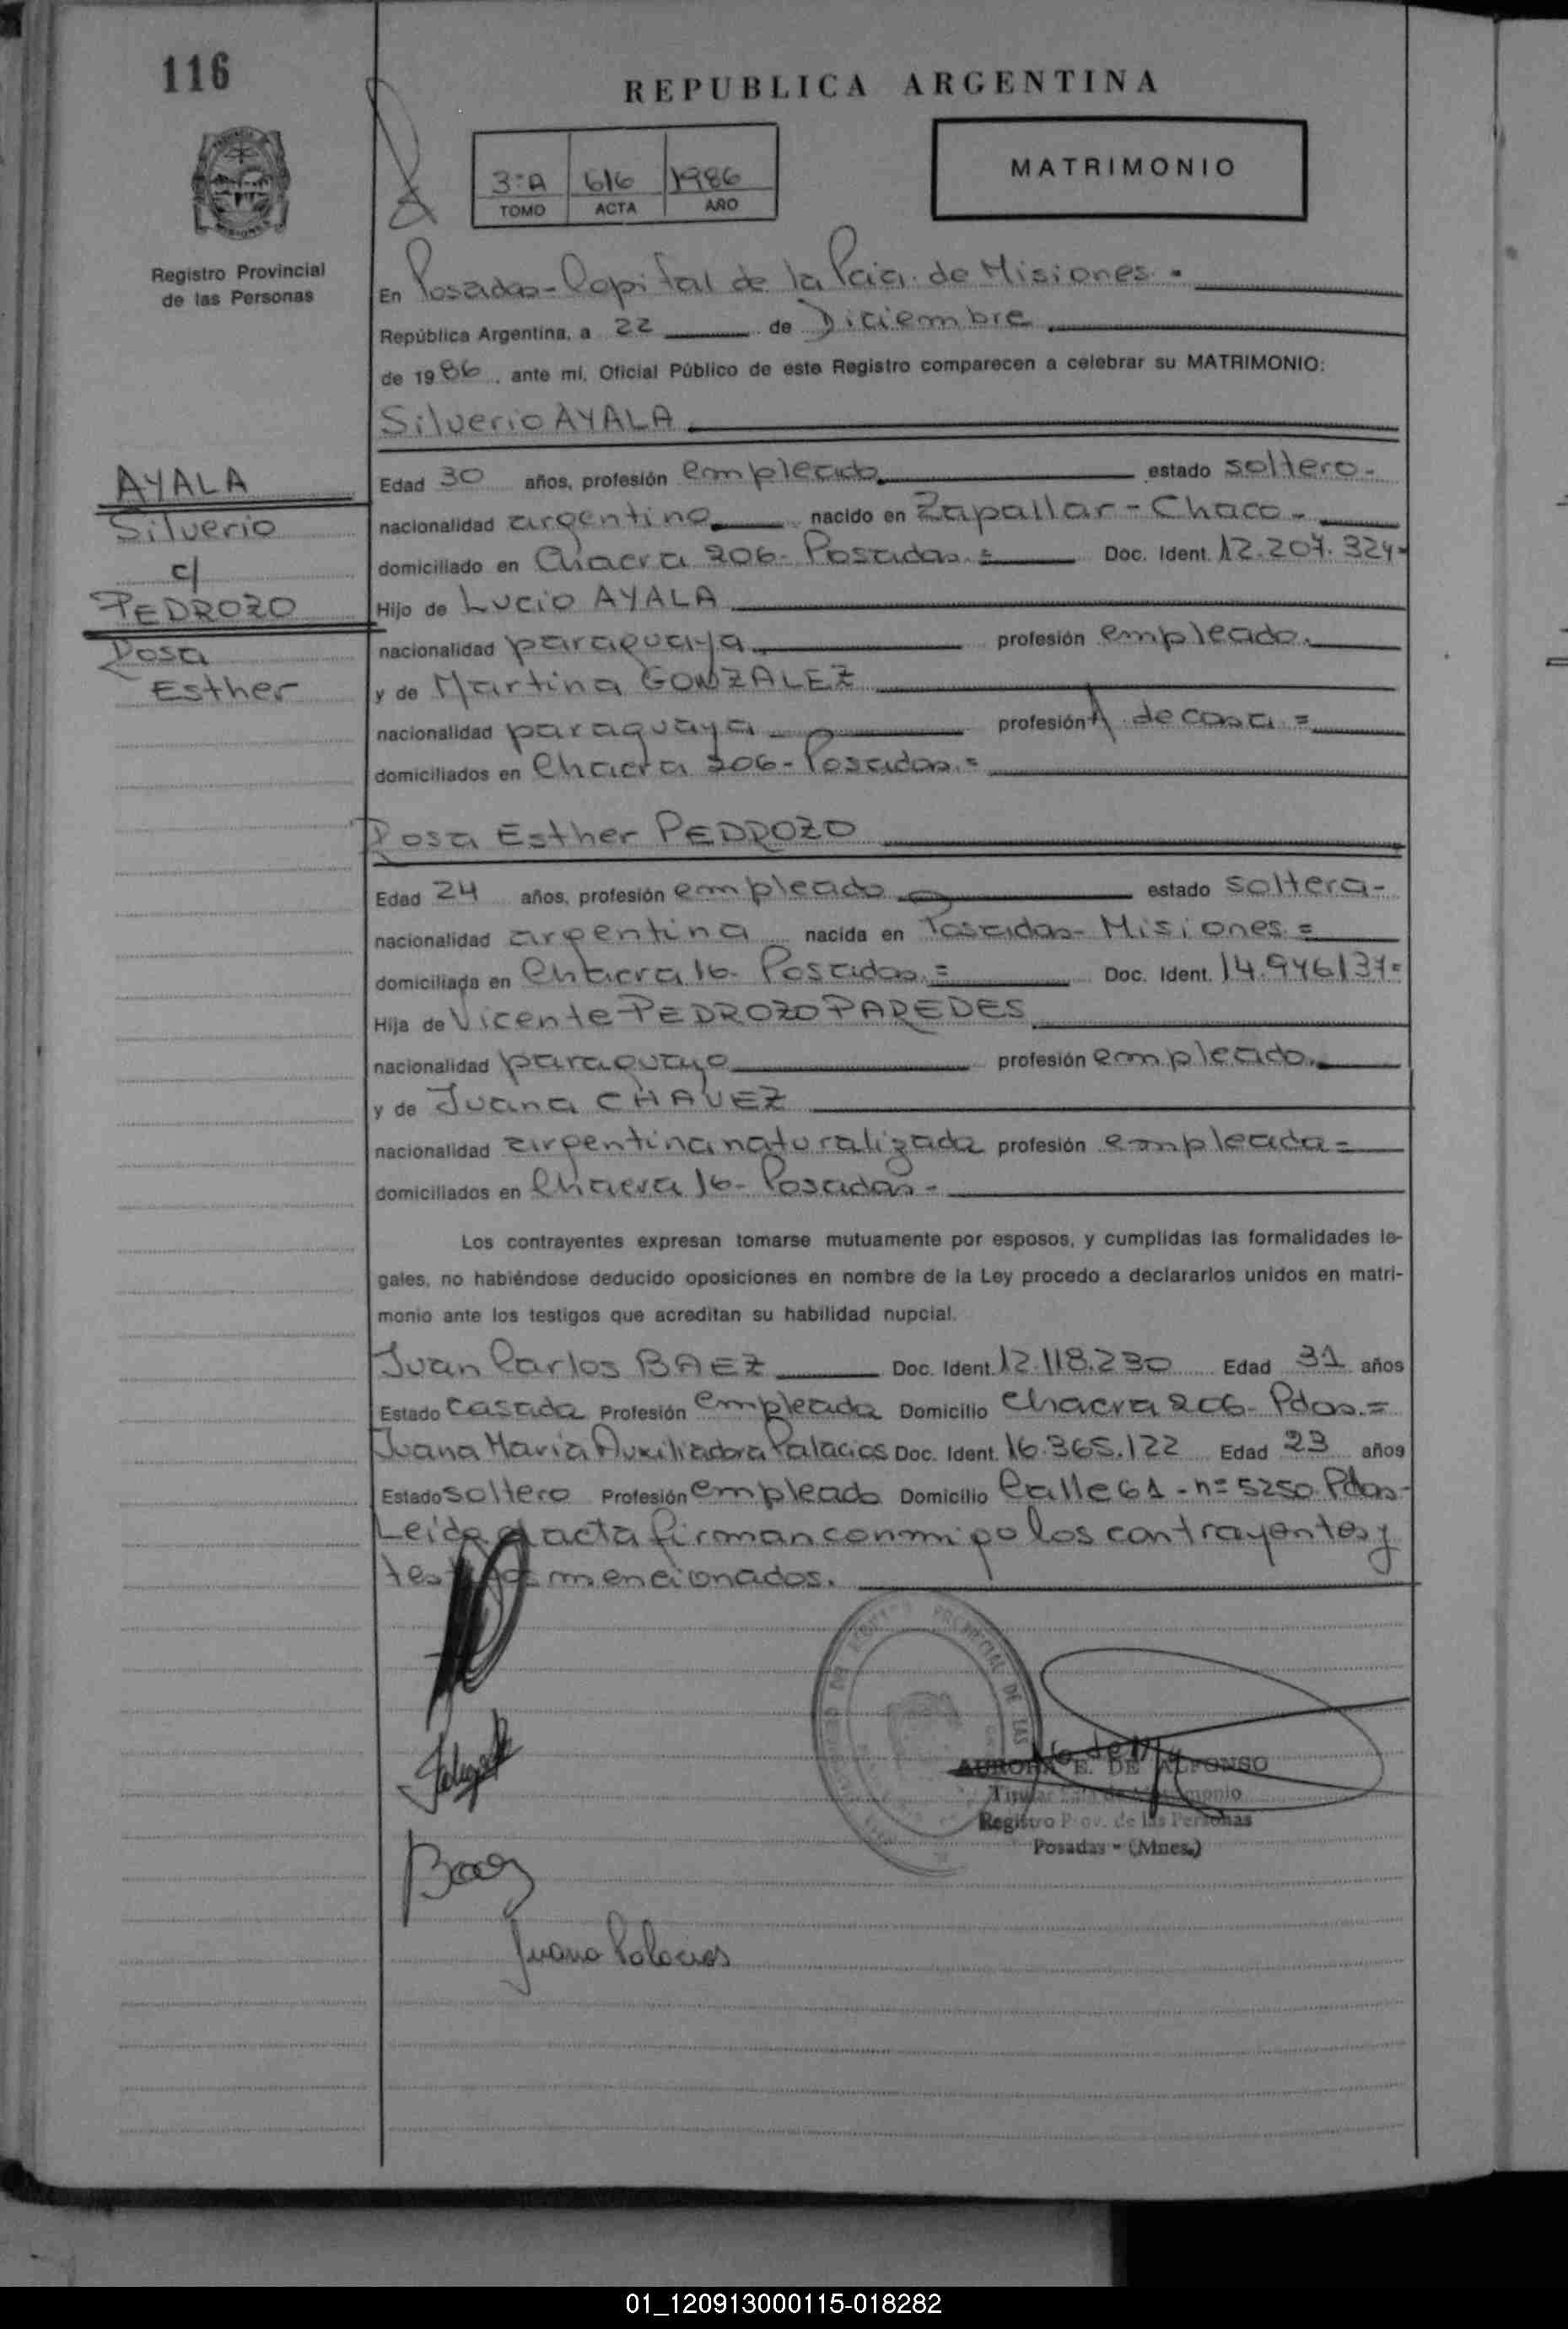 116
REPUBLICA ARGENTINA
3ºA 616 1986
TOMO ACTA AÑO
MATRIMONIO
Registro Provincial
de las Personas
En Posadas - Capital de la Pcia. de Misiones.
República Argentina, a 22 de Diciembre
de 1986, ante mi, Oficial Público de este Registro comparecen a celebrar su MATRIMONIO:
Silverio AYALA
AYALA
Silverio
c/
PEDROZO
Rosa
Esther
Edad 30 años, profesión empleado estado soltero-
nacionalidad argentino nacido en Zapallar - Chaco -
domiciliado en Chacra 206- Posadas.= Doc. Ident. 12.207.324-
Hijo de Lucio AYALA
nacionalidad paraguaya profesión empleado.
y de Martina GONZALEZ
nacionalidad paraguaya profesión A de casa =
domiciliados en Chacra 206- Posadas.=
Rosa Esther PEDROZO
Edad 24 años, profesión empleado estado soltera-
nacionalidad argentina nacida en Posadas- Misiones =
domiciliada en Chacra 16- Posadas.= Doc. Ident. 14.946.137=
Hija de Vicente PEDROZO PAREDES
nacionalidad paraguayo profesión empleado.
y de Juana CHAVEZ
nacionalidad argentina naturalizada profesión empleada=
domiciliados en Chacra 16- Posadas-
Los contrayentes expresan tomarse mutuamente por esposos, y cumplidas las formalidades le-
gales, no habiéndose deducido oposiciones en nombre de la Ley procedo a declararlos unidos en matri-
monio ante los testigos que acreditan su habilidad nupcial.
Juan Carlos BAEZ Doc. Ident. 12.118.230 Edad 31 años
Estado casada Profesión empleada Domicilio Chacra 206- Pdas.=
Juana Maria Auxiliadora Palacios Doc. Ident. 16.365.122 Edad 23 años
Estado soltero Profesión empleado Domicilio Calle 61 - nº 5250 Pdas-
Leida el acta firman conmigo los contrayentes y
testigos mencionados.
AURORA E. DE ALFONSO
Titular Sala de Matrimonio
Registro Prov. de las Personas
Posadas - (Mnes.)
Baez
Juana Palacios
01_120913000115-018282